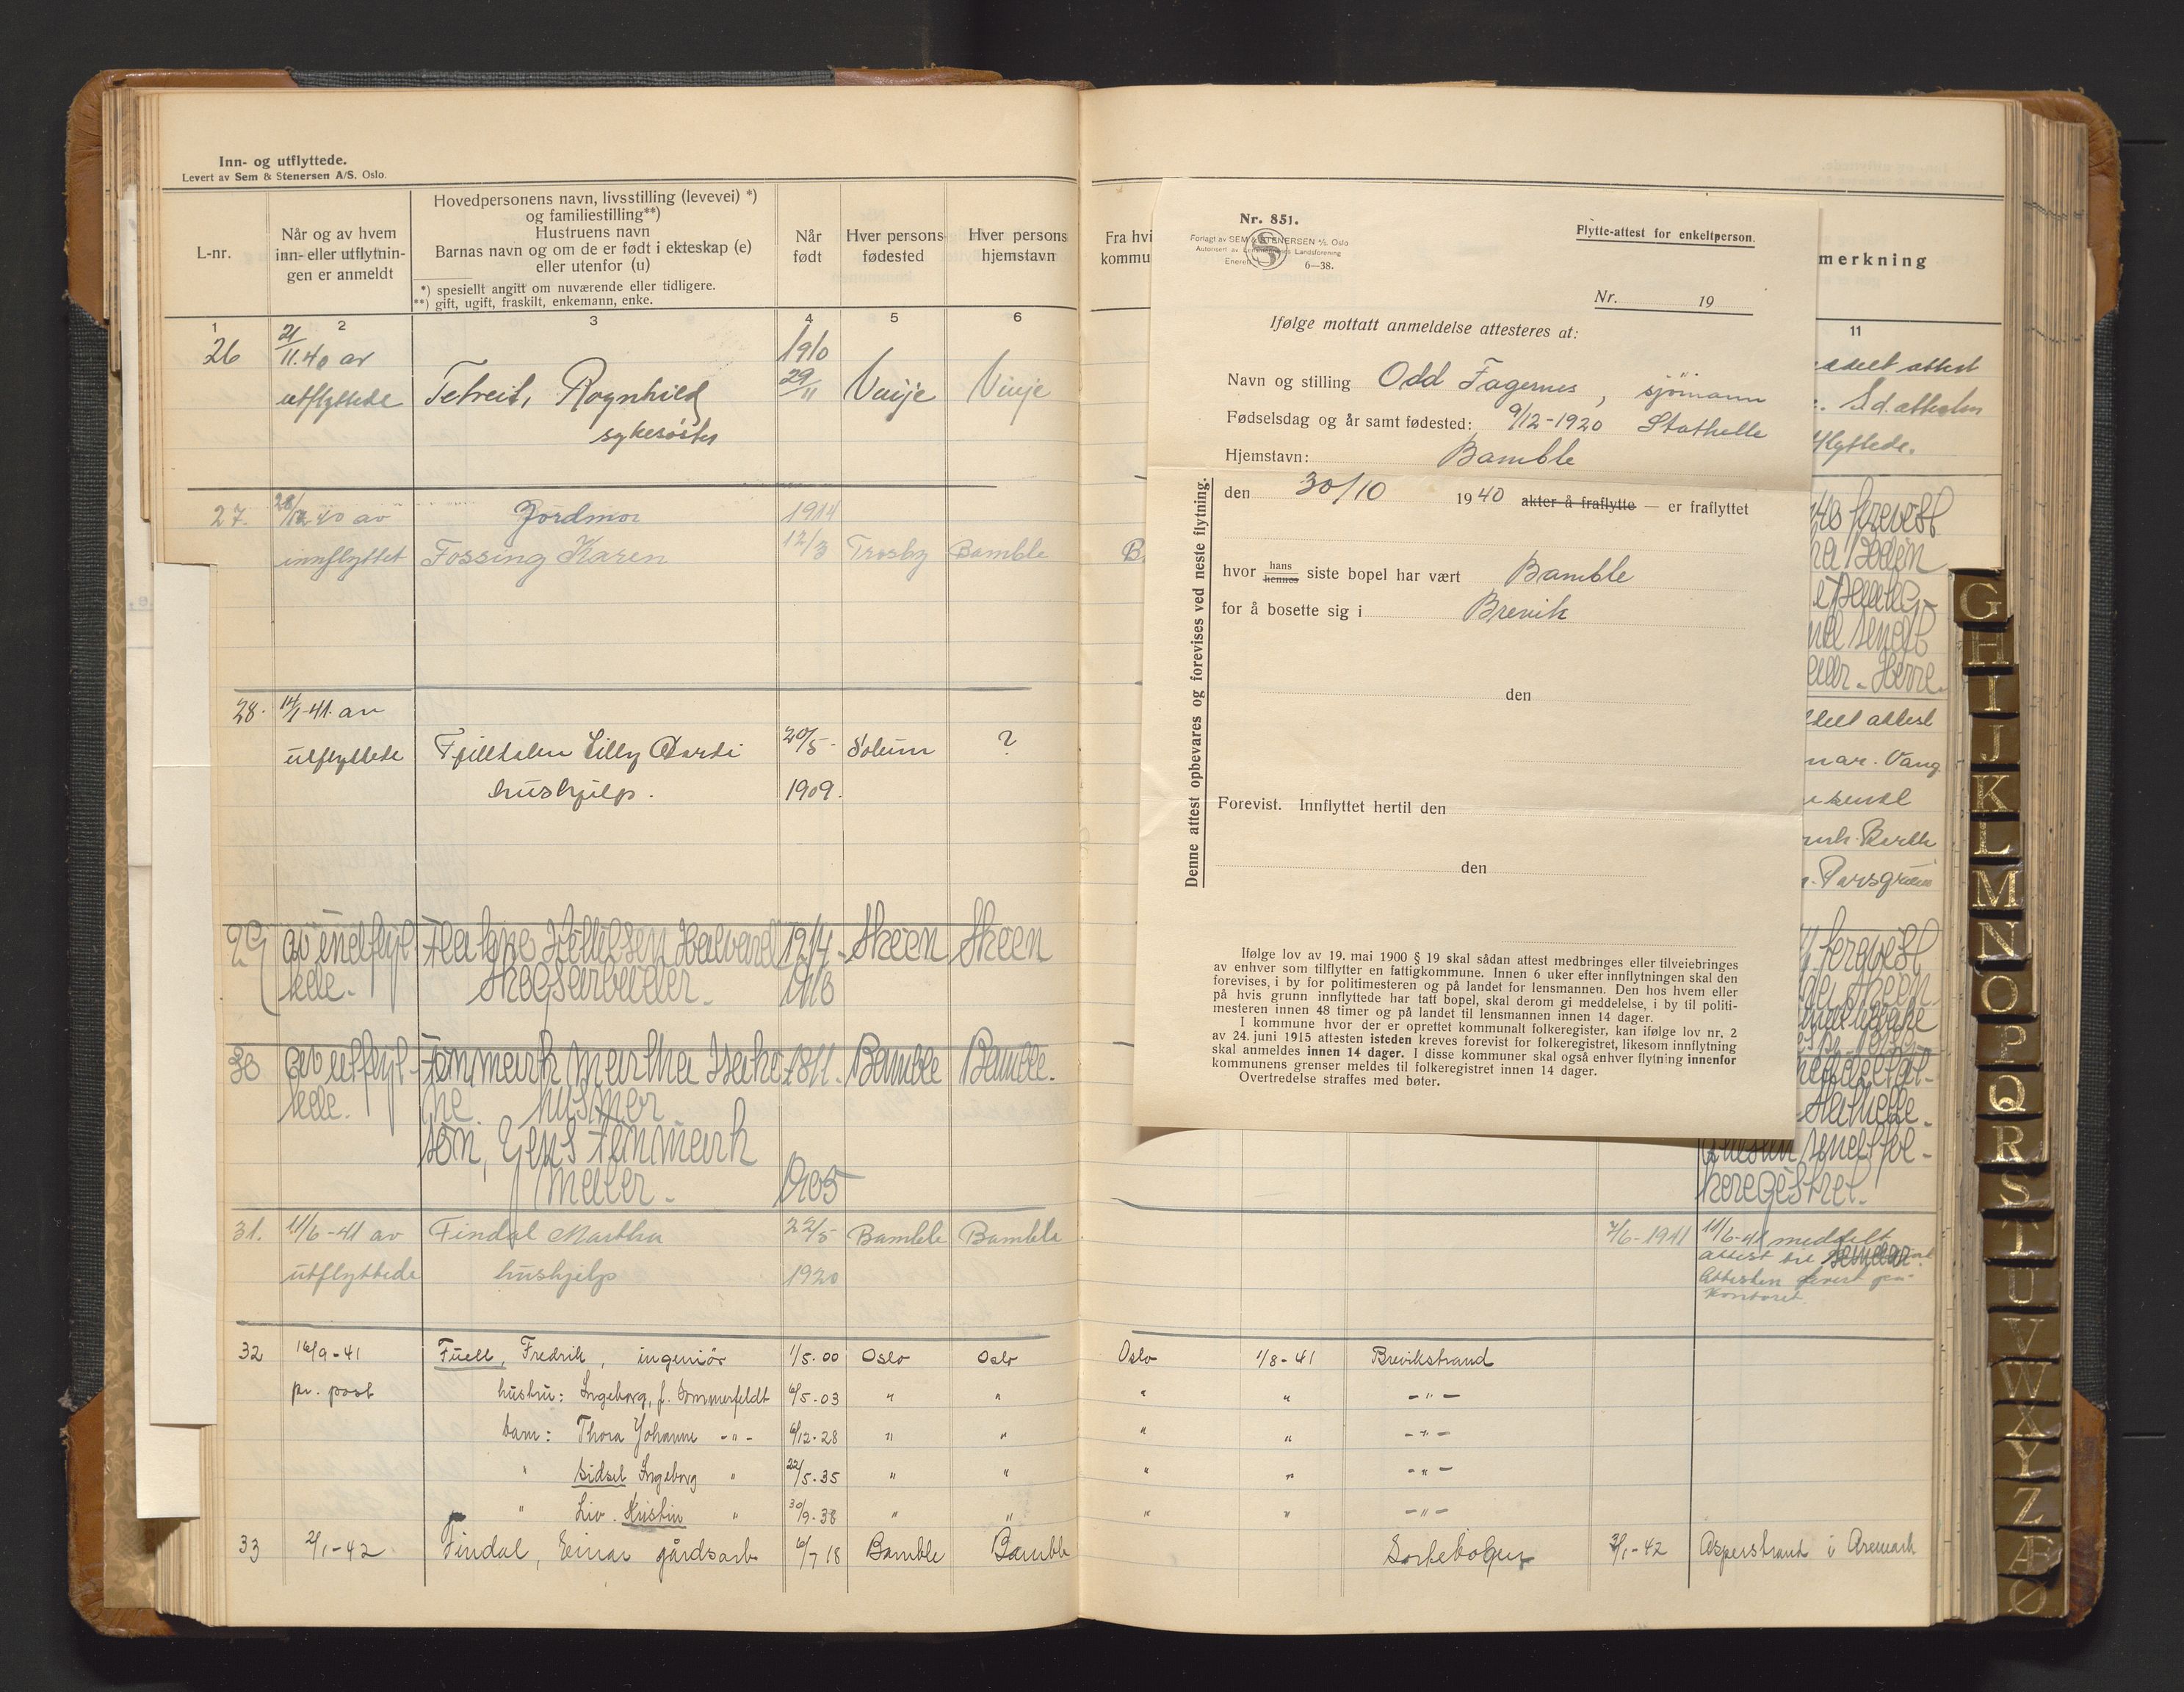 Inn- og utflyttede.
Levert av Sem & Stenersen A/S. Oslo.
L-nr.
Når og av hvem
inn- eller utflytnin-
gen er anmeldt
Hovedpersonens navn, livsstilling (levevei) *)
og familiestilling**)
Hustruens navn
Barnas navn og om de er født i ekteskap (e)
eller utenfor (u)
*) spesiellt angitt om nuværende eller tidligere.
**) gift, ugift, fraskilt, enkemann, enke.
Når
født
Hver persons
fødested
Hver persons
hjemstavn
1 2 3 4 5 6
26 11.40 av 1910
utflyttede Ragnhild 29/11 Vinje Vinje
sykesøster
27. 40 av Jordmor 1914
innflyttet Fossing Karen 12/3 Trosby Bamble
28. 14/1-41. av
utflyttede Lilly 20/5- Solum ?
hushjelp. 1909.
29 av innflyt- Halvard 19/4- Skeen Skeen
tede. Skogsarbeider. 1918
30 av utflyt- Fonmark Martha 1871. Bamble Bamble.
tede. husmor
søn, Jens Fonmark
maler. 1905
31. 11/6-41 av Findal Martha 22/5 Bamble Bambla
utflyttede hushjelp 1920
32 16/9-41 Fuell, Fredrik, ingeniør 1/5.00 Oslo Oslo
pr. post hustru: Ingeborg, f. Sommerfeldt 6/5.03 " "
barn: Thora Johanne -"- 6/12.28 " "
" Sidsel Ingeborg " 22/5.35 " "
" Liv. Kristin " 30/9.38 " "
33 2/1-42 Findal, Einar gårdsarb 6/7 18 Bamble Bamble
Fra hvi
kommu
B.
Nr. 851.
Forlagt av SEM & STENERSEN A/S. Oslo
Autorisert av Lensmennenes Landsforening
Enerett 6—38.
Flytte-attest for enkeltperson.
Nr. 19
Ifølge mottatt anmeldelse attesteres at:
Navn og stilling Odd Fagernes, sjømann
Fødselsdag og år samt fødested: 9/12-1920 Stathelle
Hjemstavn: Bamble
den 30/10 1940 akter å fraflytte — er fraflyttet
hvor hans hennes siste bopel har vært Bamble
for å bosette sig i Brevik
den
Forevist. Innflyttet hertil den
den
Denne attest opbevares og forevises ved neste flytning.
Ifølge lov av 19. mai 1900 § 19 skal sådan attest medbringes eller tilveiebringes
av enhver som tilflytter en fattigkommune. Innen 6 uker efter innflytningen skal den
forevises, i by for politimesteren og på landet for lensmannen. Den hos hvem eller
på hvis grunn innflyttede har tatt bopel, skal derom gi meddelelse, i by til politi-
mesteren innen 48 timer og på landet til lensmannen innen 14 dager.
I kommune hvor der er oprettet kommunalt folkeregister, kan ifølge lov nr. 2
av 24. juni 1915 attesten isteden kreves forevist for folkeregistret, likesom innflytning
skal anmeldes innen 14 dager. I disse kommuner skal også enhver flytning innenfor
kommunens grenser meldes til folkeregistret innen 14 dager.
Overtredelse straffes med bøter.
merkning
11
attest
attesten
flyttede.
Herre.
attest
Vang
Porsgrunn
forevist
Skeen
Stathelle.
keregistret.
7/6-1941 11/6-41 meddelt
attest til
Attesten levert på
kontoret.
Oslo 1/8-41 Brevikstrand
" " -"-
" " -"-
" " -"-
" " -"-
2/1-42 Asperstrand i Aremark
G
H
I
J
K
L
M
N
O
P
Q
R
S
T
U
V
W
X
Y
Z
Æ
Ø